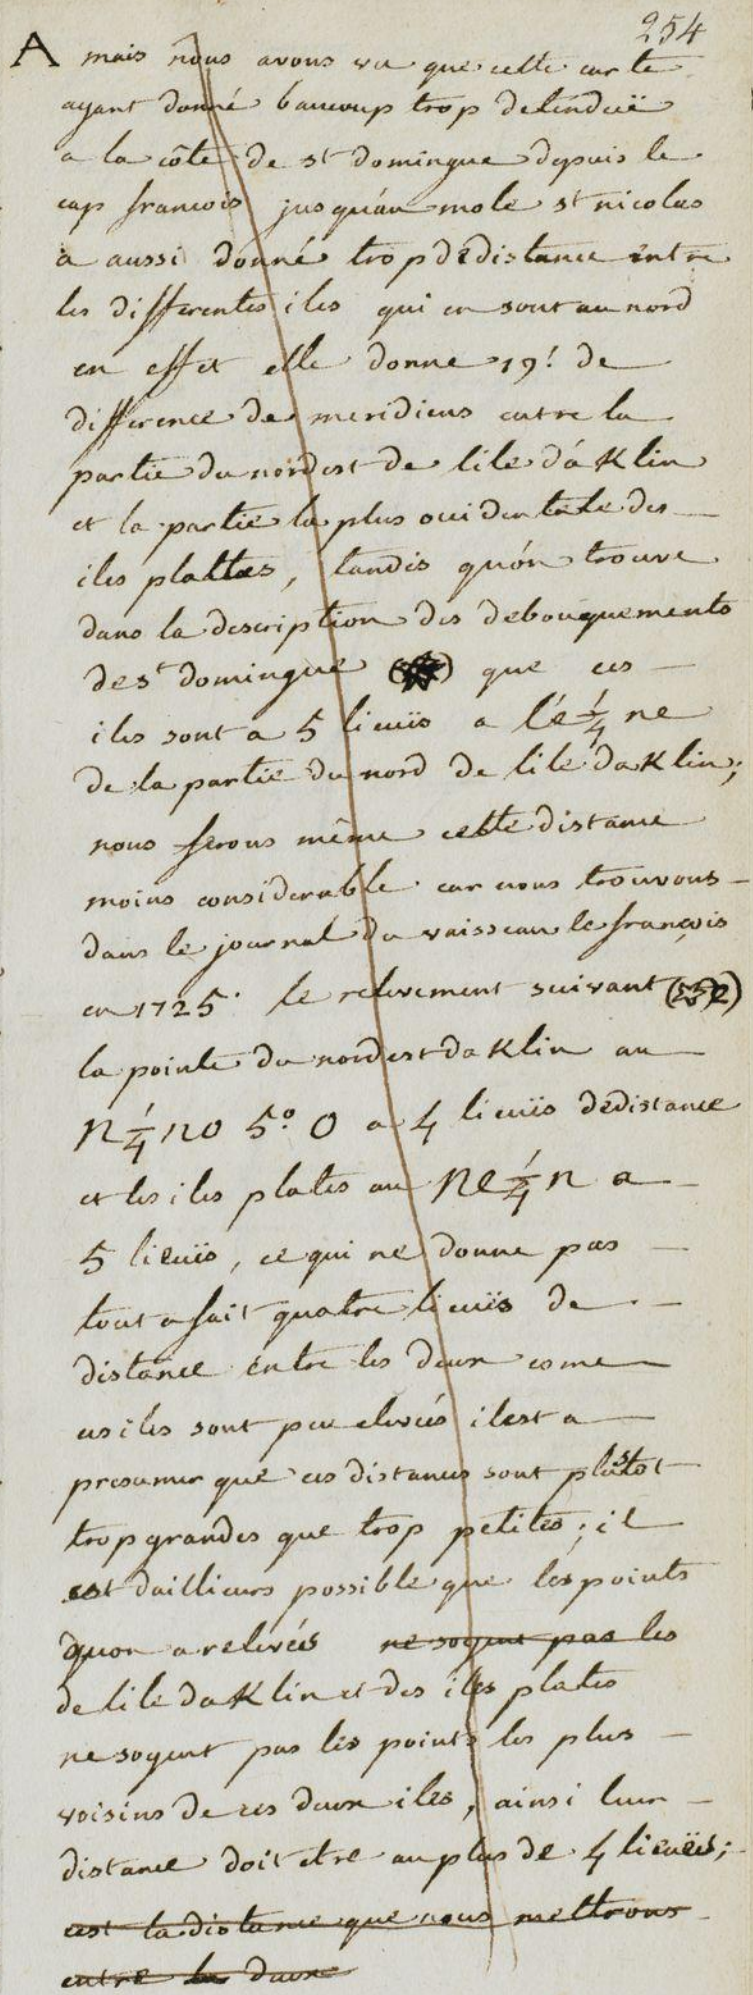 254
A mais nous avons vu que cette carte
ayant donné baucoup trop detenduë
a la côte de st domingue depuis le
cap francois jusquáu mole st nicolas
a aussi donné trop dedistance entre
les differentes iles qui en sont au nord
en effet elle donne 19! de
difference de meridiens entre la
partie du nordest de lile dáKlin
et la partie la plus occidentale des
iles plattes, tandis quón trouve
dans la description des debouquements
de st domingue que ces
iles sont a 5 lieuës a l'é 1/4 ne
de la partie du nord de lile daKlin;
nous ferons même cette distance
moins considerable car nous trouvons
dans le journal du vaisseau le françois
en 1725. le relevement suivant
la pointe du nordest daKlin au
N 1/4 no 5.° O a 4 lieuës dedistance
et les iles plates au Ne 1/4 n a
5 lieuës, ce qui ne donne pas
tout a fait quatre lieuës de
distance entre les deux come
ces iles sont peu elevées il est a
presumer que ces distances sont plustot
trop grandes que trop petites; il
est dailleurs possible que les points
quon a relevées ne soyent pas les
de lile daKlin et des iles plates
ne soyent pas les points les plus
voisins de ces deux iles, ainsi leur
distance doit etre au plus de 4 lieuës;
cest la distance que nous mettrons
entre les deux